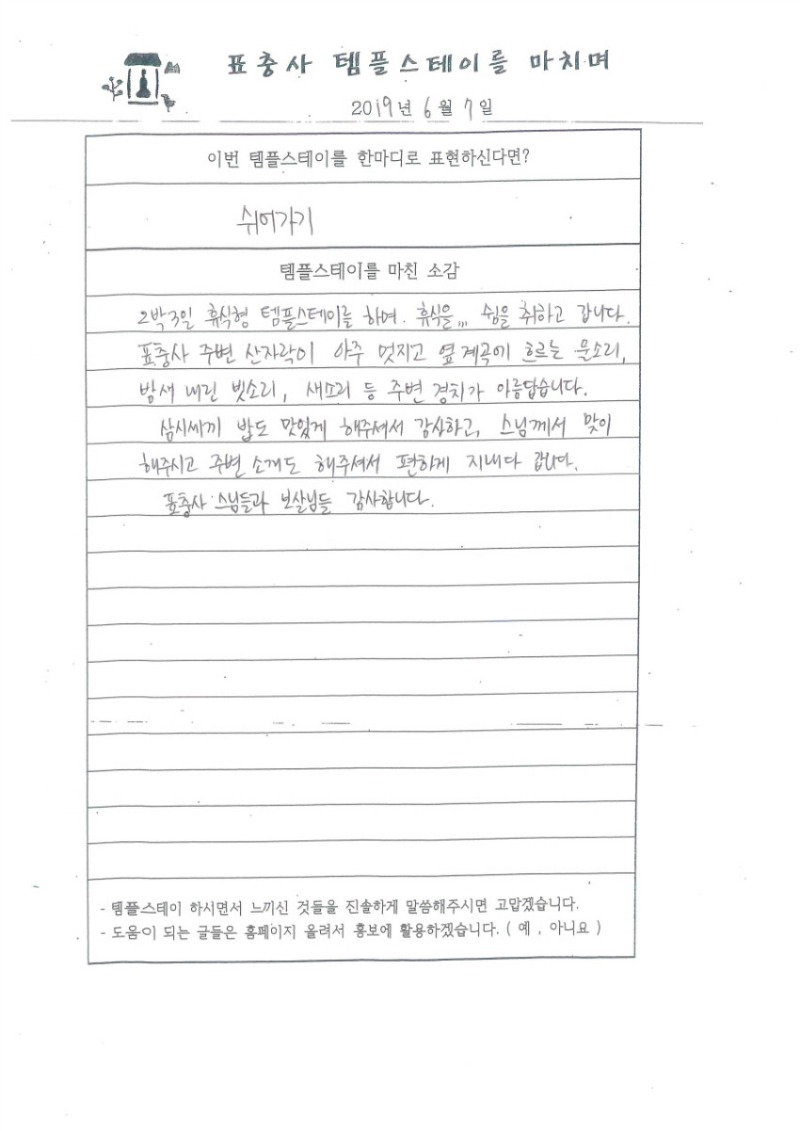 표충사 템플스테이를 마치며
2019년 6월 7일
이번 템플스테이를 한마디로 표현하신다면?
쉬어가기
템플스테이를 마친 소감
2박3일 휴식형 템플스테이를 하며. 휴식을,,, 쉼을 취하고 갑니다.
표충사 주변 산자락이 아주 멋지고 옆 계곡에 흐르는 물소리,
밤새 내린 빗소리, 새소리 등 주변 경치가 아름답습니다.
삼시세끼 밥도 맛있게 해주셔서 감사하고, 스님께서 맞이
해주시고 주변 소개도 해주셔서 편하게 지내다 갑니다.
표충사 스님들과 보살님들 감사합니다.
- 템플스테이 하시면서 느끼신 것들을 진솔하게 말씀해주시면 고맙겠습니다.
- 도움이 되는 글들은 홈페이지 올려서 홍보에 활용하겠습니다. ( 예 , 아니요 )